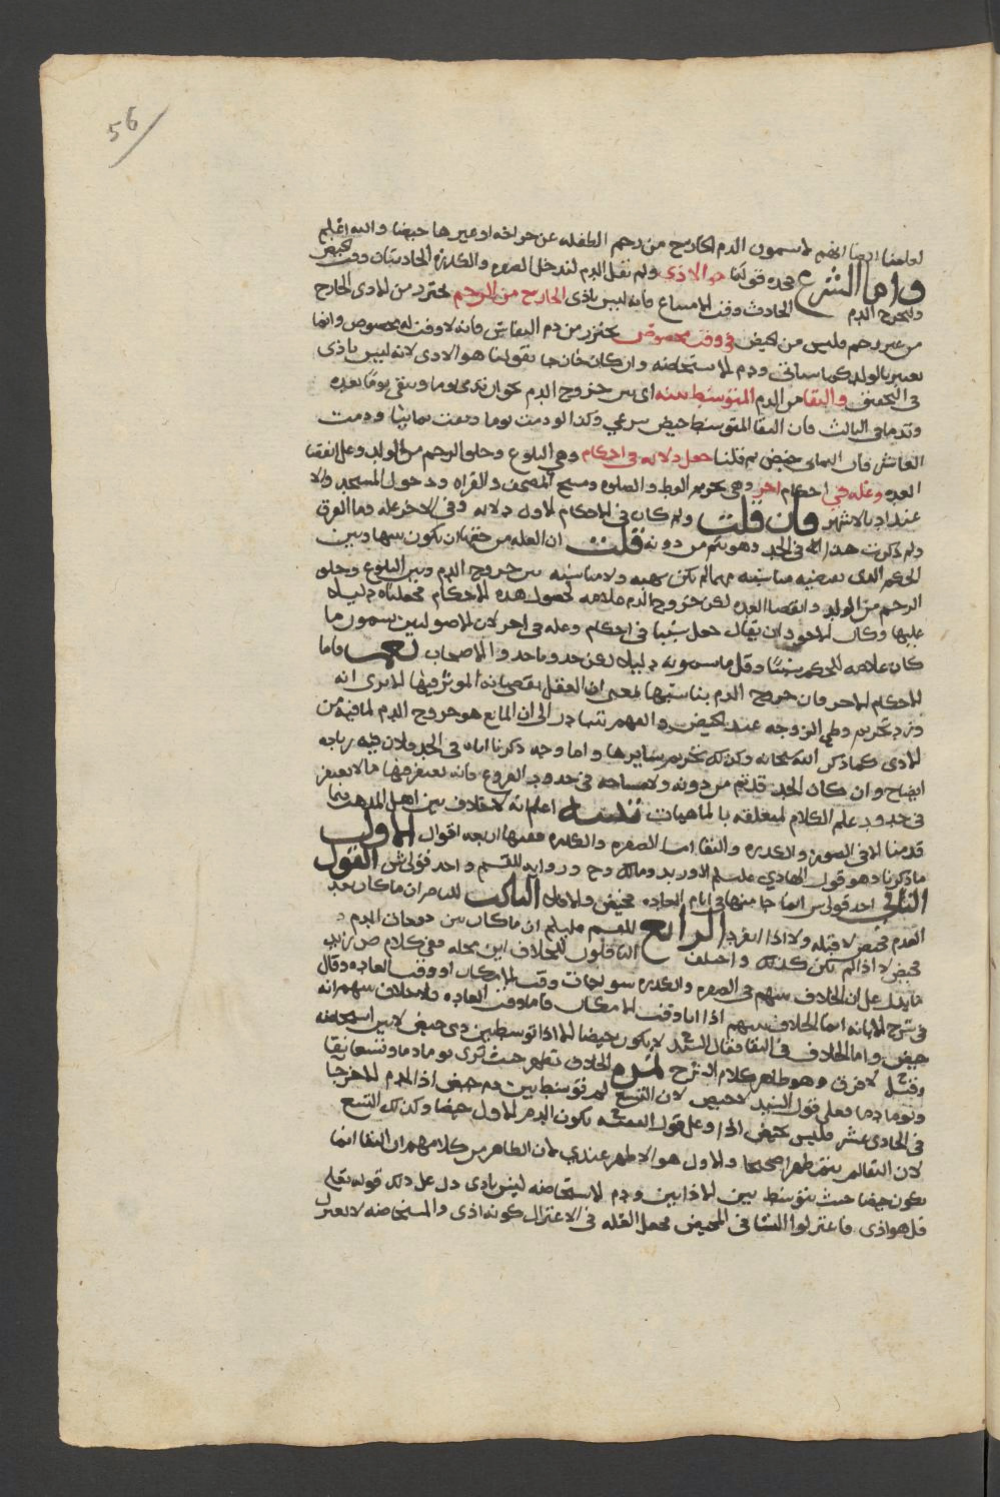 56
ايضا انهم لا يسمون الدم الخارج من رحم الطفله عن جراحه او غيرها حيضا والله اعلم
واما الشرع فحده قولنا هو الاذى ولم نقل الدم لتدخل الصفره والكدره الحادثتان وقت الحيض
وليخرج الدم الحادث وقت الامتناع فانه ليس باذى الخارج من الرحم يحترز من الاذى الخارج
من غير رحم فليس من الحيض في وقت مخصوص يحترز من دم النفاس فانه لا وقت له مخصوص وانما
يعتبر بالولد كما سياتي ودم الاستحاضه وان كان خارجا بقولنا هو الاذى لانه ليس باذى
في التحقيق والنقا من الدم المتوسط بينه اي بين خروج الدم نحو ان ترى يوما وينقى يوما بعده
وتدما في الثالث فان النقا المتوسط حيض شرعي وكذا لو دمت يوما ونقت ثمانيا ودمت
العاشر فان الثماني حيض ثم قلنا جعل دلاله في احكام وهي البلوغ وخلو الرحم من الولد وعلى انقضا
العده وعله في احكام اخر وهي تحريم الوطي والصلوه ومسح المصحف والقراه ودخول المسجد والا
عتداد بالاشهر فان قلت ولم كان في الاحكام الاول دلاله وفي الاخر عله وما الفرق
ولم ذكرت هذا كله في الحد وهو يتم من دونه قلت ان العله من حقها ان يكون بينها وبين
الحكم الذي تقتضيه مناسبه مهما لم تكن شبهه ولا مناسبه بين خروج الدم وبين البلوغ وخلو
الرحم من الولد وانقضا العده لكن خروج الدم علامه لحصول هذه الاحكام فجعلناه دليلا
عليها وكان الاجود ان يقال جعل سببا في احكام وعله في اخر لان الاصوليين يسمون ما
كان علامه للحكم سببا وقل ما يسمونه دليلا لكن حدونا حدو الاصحاب نعم فاما
الاحكام الاخر فان خروج الدم يناسبها بمعنى ان العقل يقضي بانه الموثر فيها الا ترى انه
ورد تحريم وطي الزوجه عند الحيض والفهم يتبادر الى ان المانع هو خروج الدم لما فيه من
الاذى كما ذكر الله سبحانه وكذلك تحريم سايرها واما وجه ذكرنا اياه في الحد فلان فيه زياده
ايضاح وان كان الحد قد تم من دونه ولا مشاحه في حدود الفروع فانه يغتفر فيها ما لا يغتفر
في حدود علم الكلام المتعلقه بالماهيات تنبيه اعلم انه لا خلاف بين اهل المذهب فيما
قدمنا الا في الصفره والكدره والنقا اما الصفره والكدره ففيها اربعه اقوال الاول
ما ذكرنا وهو قول الهادي عليلم والمويد ومالك وح وروايه للقسم واحد قولي ش القول
الثاني احد قولي ش ان ما جا منها في ايام العاده فحيض والا فلا الثالث للناصر ان ما كان بعد
الدم فحيض لا قبله ولا اذا انفرد الرابع للقسم عليلم ان ما كان بين دفعات الدم
فحيض لا اذا لم تكن كذلك واختلف الناقلون للخلاف اين محله ففي كلام ص زيد
ما يدل على ان الخلاف بينهم في الصفره والكدره سوا جات وقت الامكان او وقت العاده وقال
في شرح الابانه انما الخلاف بينهم اذا اتا وقت الامكان فاما وقت العاده فلا خلاف بينهم انه
حيض واما الخلاف في النقا فقال السيد لا يكون حيضا الا اذا توسط بين دمي حيض لا بين استحاضه
وقيل لا فرق وهو ظاهر كلام الشرح ثمره الخلاف تظهر حيث ترى يوما دما وتسعا نقا
ويوما دما فعلى قول السيد لا حيض لان التسع لم تتوسط بين دم حيض اذ الدم الاخر جا
في الحادي عشر فليس بحيض الخ وعلى قول الفقيه يكون الدم الاول حيضا وكذلك التسع
لان النقا لم يتم طهرا صحيحا والاول هو الاظهر عندي لان الظاهر من كلامهم ان النقا انما
يكون حيضا حيث يتوسط بين الاذايين ودم الاستحاضه ليس باذى دل على ذلك قوله تعلى
قل هو اذى فاعتزلوا النسا في المحيض فجعل العله في الاعتزال كونه اذى والمستحاضه لا تعتزل